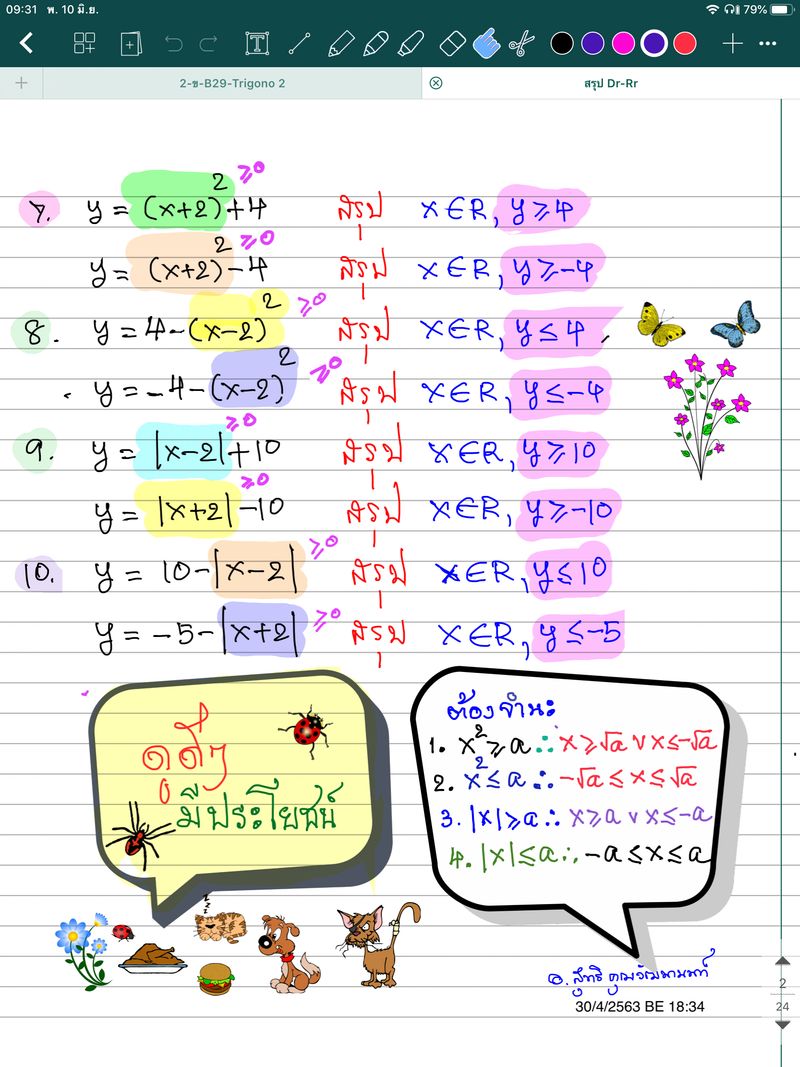 09:31 พ. 10 มิ.ย. 79%
2-ข-B29-Trigono 2 สรุป Dr-Rr
7. y = (x+2)² + 4 ≥0 สรุป x∈R, y ≥ 4
y = (x+2)² - 4 ≥0 สรุป x∈R, y ≥ -4
8. y = 4 - (x-2)² ≥0 สรุป x∈R, y ≤ 4
y = -4 - (x-2)² ≥0 สรุป x∈R, y ≤ -4
9. y = |x-2| + 10 ≥0 สรุป x∈R, y ≥ 10
y = |x+2| - 10 ≥0 สรุป x∈R, y ≥ -10
10. y = 10 - |x-2| ≥0 สรุป x∈R, y ≤ 10
y = -5 - |x+2| ≥0 สรุป x∈R, y ≤ -5
ดูดีๆ
มีประโยชน์
ต้องจำนะ
1. x² ≥ a ∴ x ≥ √a ∨ x ≤ -√a
2. x² ≤ a ∴ -√a ≤ x ≤ √a
3. |x| ≥ a ∴ x ≥ a ∨ x ≤ -a
4. |x| ≤ a ∴ -a ≤ x ≤ a
30/4/2563 BE 18:34
2
24